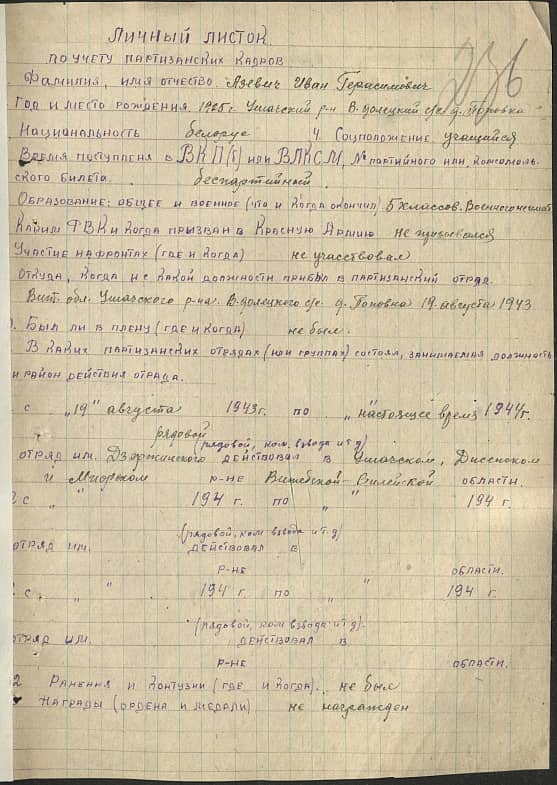 Личный листок
по учету партизанских кадров
236
Фамилия, имя отчество Азевич Иван Герасимович
Год и место рождения 1925г Ушачский р-н В. долецкий с/с д. Поповка
Национальность белорус 4. Соцположение учащийся
Время поступления в ВКП(б) или ВЛКСМ, № партийного или комсомоль-
ского билета. беспартийный.
Образование: общее и военное (что и когда окончил) 5 классов. Военного не имеет
Каким ФВК и когда призван в Красную Армию не призывался
Участие на фронтах (где и когда) не участвовал
Откуда, когда и с какой должности прибыл в партизанский отряд.
Вит. обл. Ушачского р-на В-долецкого с/с д. Поповка 19 августа 1943
). Был ли в плену (где и когда) не был.
В каких партизанских отрядах (или группах) состоял, занимаемая должность
и район действия отрада.
с „19" августа 1943г. по „ " настоящее время 1944г.
рядовой
(рядовой, ком. взвода и т д)
отряд им. Дзержинского действовал в Ушачском, Дисенском
и Миорском р-не Витебской-Вилейской области.
с „ " 194 г. по „ " 194 г.
(рядовой, ком взвода и т. д)
отряд им. действовал в
р-не области.
с „ " 194 г. по „ " 194 г.
(рядовой, ком взвода и т д).
отряд им. действовал в
р-не области.
2 Ранения и контузии (где и когда). не был
Награды (ордена и медали) не награжден